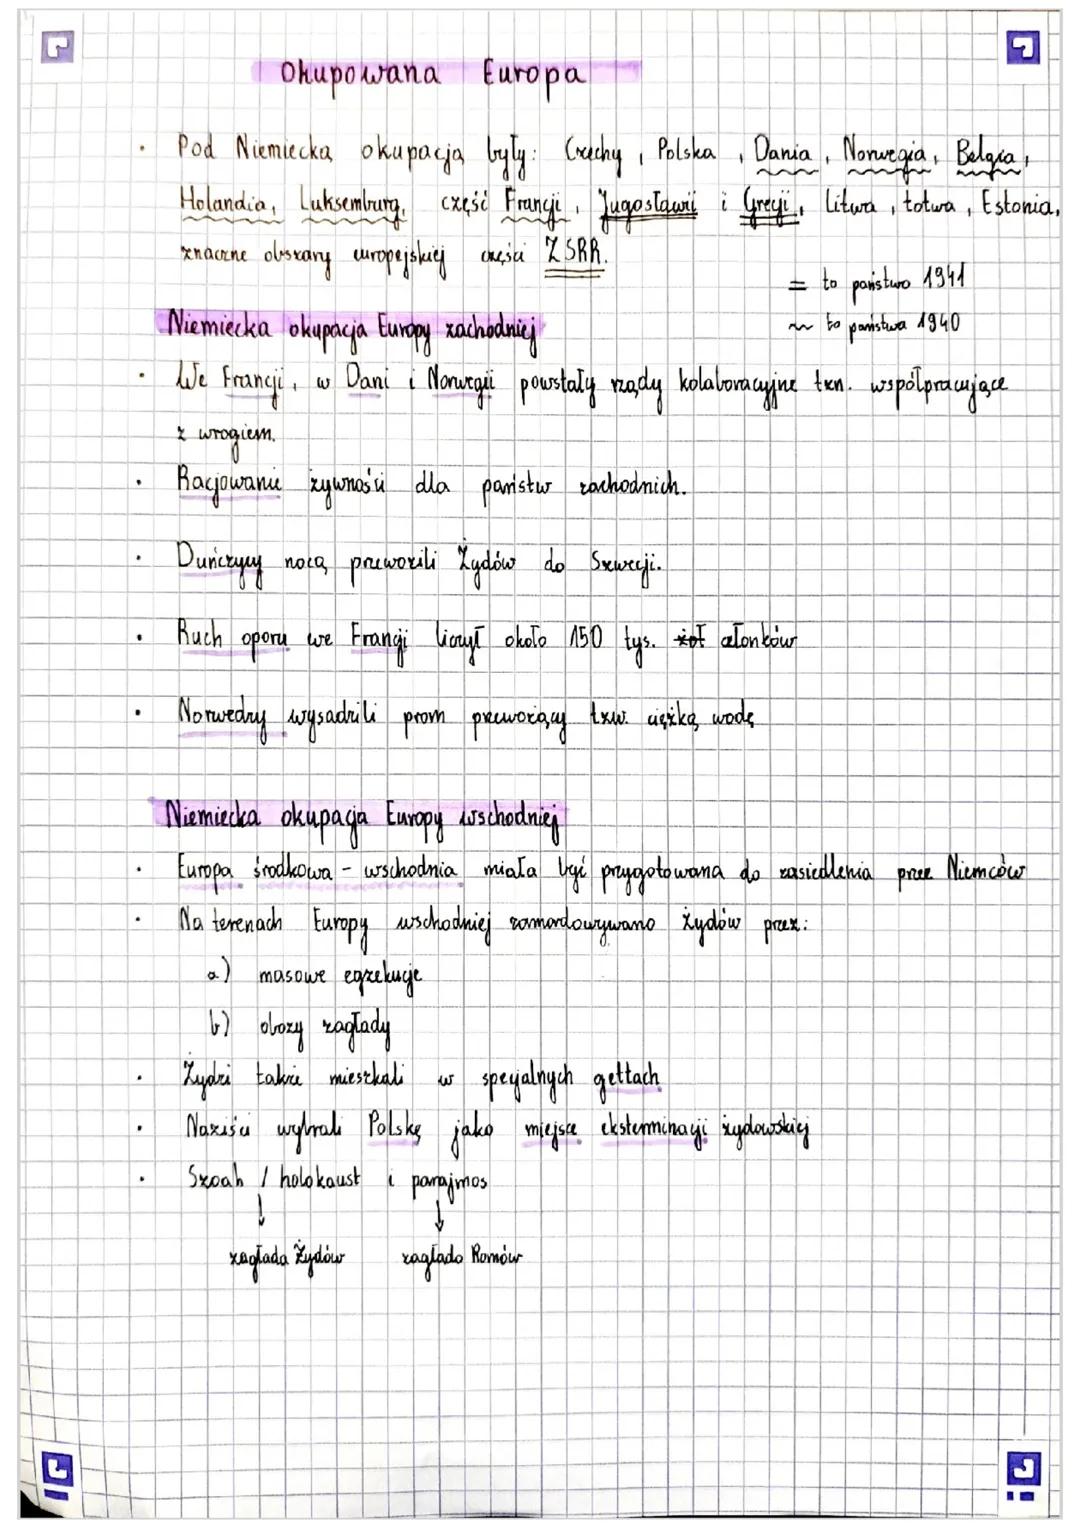 Okupowana Europa
• Pod Niemiecką okupacją były: Czechy, Polska, Dania, Norwegia, Belgia,
Holandia, Luksemburg, część Francji, Jugosławii i Grecji, Litwa, Łotwa, Estonia,
znaczne obszary europejskiej części ZSRR.
= to państwo 1941
~ to państwa 1940
Niemiecka okupacja Europy zachodniej
• We Francji, w Dani i Norwegii powstały rządy kolaboracyjne tzn. współpracujące
z wrogiem.
• Racjowanie żywności dla państw zachodnich.
• Duńczycy nocą przewozili Żydów do Szwecji.
• Ruch oporu we Francji liczył około 150 tys. członków
• Norwedzy wysadzili prom przewożący tzw. ciężką wodę
Niemiecka okupacja Europy wschodniej
• Europa środkowa - wschodnia miała być przygotowana do zasiedlenia przez Niemców
• Na terenach Europy wschodniej zamordowywano żydów przez:
a) masowe egzekucje
b) obozy zagłady
• Żydzi także mieszkali w specjalnych gettach
• Naziści wybrali Polskę jako miejsce eksterminacji żydowskiej
• Szoah / holokaust i porajmos
↓ ↓
zagłada Żydów zagłada Romów